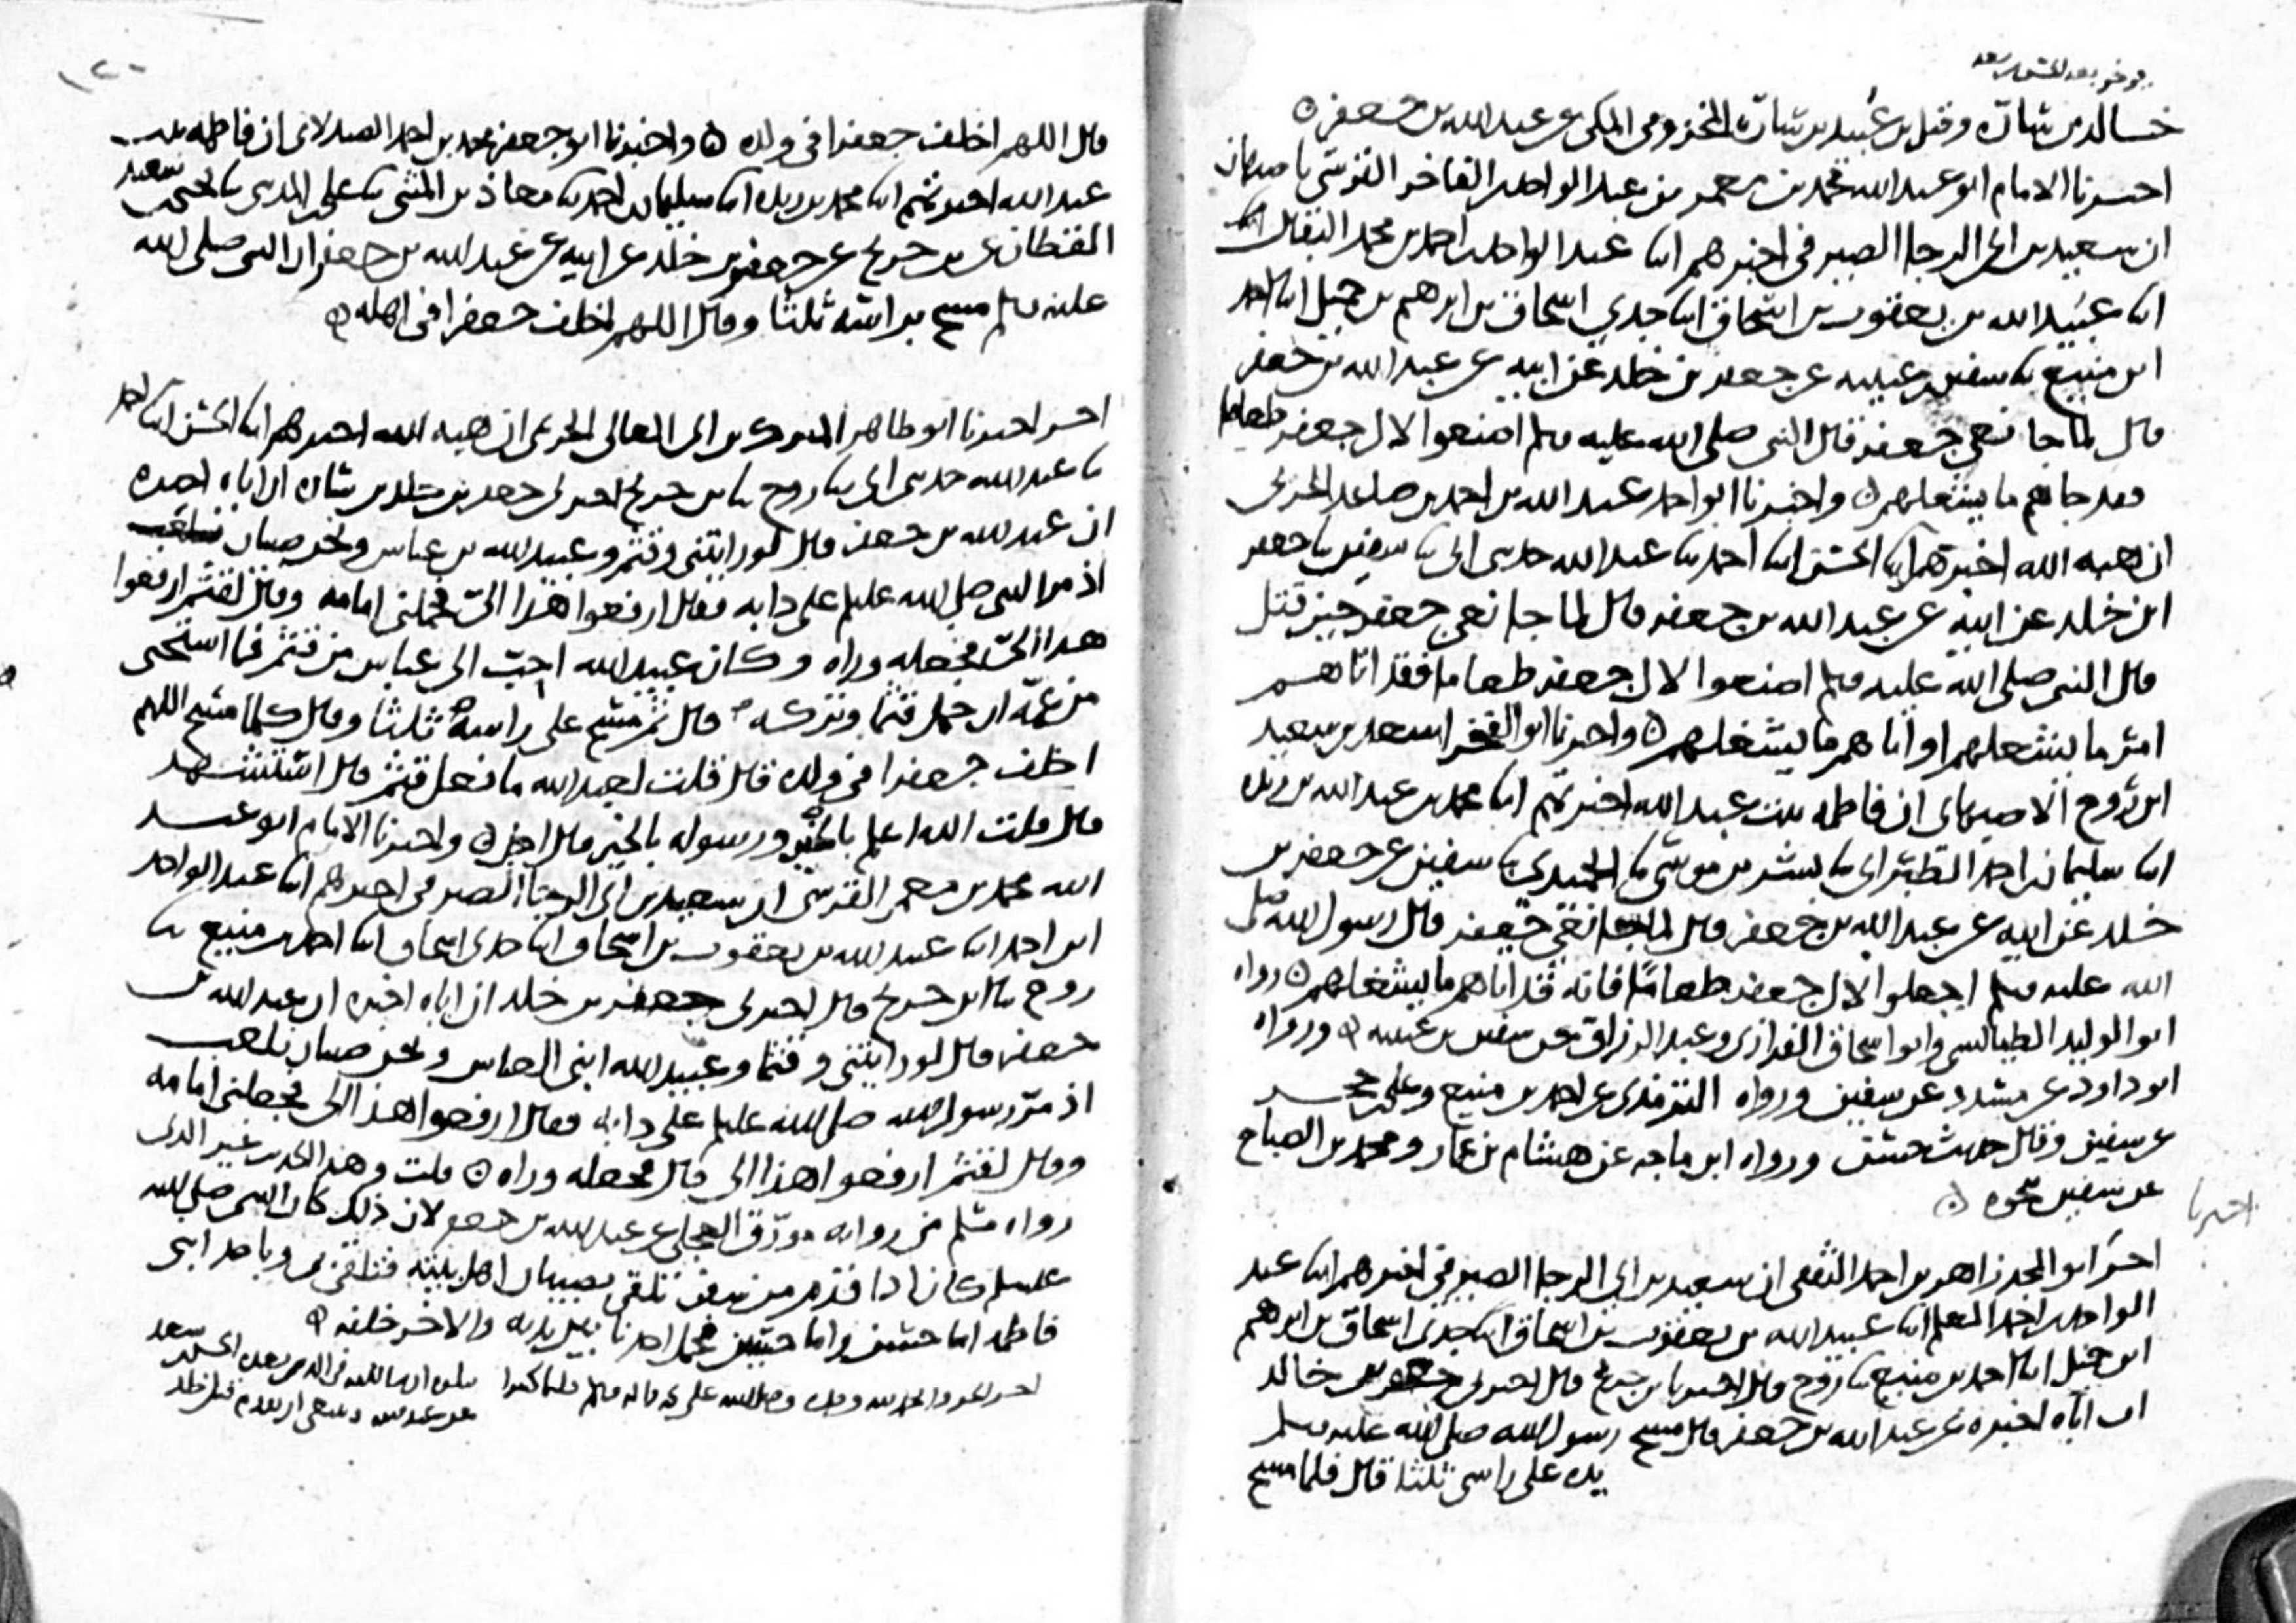 خالد بن سارة وقيل بن عبيد بن سارة المخزومي المكي عن عبد الله بن جعفر
اخبرنا الامام ابو عبد الله محمد بن معمر بن عبد الواحد الفاخر القرشي باصبهان
ان سعيد بن ابي الرجا الصيرفي اخبرهم ابنا عبد الواحد احمد بن محمد البقال ابنا
ابنا عبيد الله بن يعقوب بن اسحاق ابنا جدي اسحاق بن ابرهيم بن جميل ابنا احمد
ابن منيع نا سفين بن عيينه عن جعفر بن خلد عن ابيه عن عبد الله بن جعفر
قال لما جا نعي جعفر قال النبي صلى الله عليه وسلم اصنعوا لال جعفر طعاما
فقد جاهم ما يشغلهم واخبرنا ابو احمد عبد الله بن احمد بن صاعد الحربي
ان هبه الله اخبرهم ابنا الحسن ابنا احمد نا عبد الله حدثني ابي نا سفين نا جعفر
ابن خلد عن ابيه عن عبد الله بن جعفر قال لما جا نعي جعفر حين قتل
قال النبي صلى الله عليه وسلم اصنعوا لال جعفر طعاما فقد اتاهم
امر ما يشغلهم او اتاهم ما يشغلهم واخبرنا ابو الفخر اسعد بن سعيد
ابن روح الاصبهاني ان فاطمه بنت عبد الله اخبرتهم ابنا محمد بن عبد الله بن ريذه
ابنا سليمان بن احمد الطبراني نا بشر بن موسى نا الحميدي نا سفين عن جعفر بن
خلد عن ابيه عن عبد الله بن جعفر قال لما جا نعي جعفر قال رسول الله صلى
الله عليه وسلم اجعلوا لال جعفر طعاما فانه قد اتاهم ما يشغلهم رواه
ابو الوليد الطيالسي وابو اسحاق الفزاري وعبد الرزاق عن سفين بن عيينه ورواه
ابو داود عن مسدد عن سفين ورواه الترمذي عن احمد بن منيع وعلي بن حجر
عن سفين وقال حديث حسن ورواه ابن ماجه عن هشام بن عمار ومحمد بن الصباح
عن سفين نحوه
اخبرنا
اخبرنا ابو المجد زاهر بن احمد الثقفي ان سعيد بن ابي الرجا الصيرفي اخبرهم ابنا عبد
الواحد بن احمد المعلم ابنا عبيد الله بن يعقوب بن اسحاق ابنا جدي اسحاق بن ابرهيم
ابن جميل ابنا احمد بن منيع نا روح قال اخبرنا بن جريج قال اخبرني جعفر بن خالد
ان اباه اخبره عن عبد الله بن جعفر قال مسح رسول الله صلى الله عليه وسلم
يده على راسي ثلثا قال فلما مسح
١٢٠
قال اللهم اخلف جعفرا في ولده واخبرنا ابو جعفر محمد بن احمد الصيدلاني ان فاطمه بنت
عبد الله اخبرتهم ابنا محمد بن ريذه ابنا سليمان بن احمد نا معاذ بن المثنى نا علي بن المديني نا يحيى بن سعيد
القطان عن بن جريج عن جعفر بن خلد عن ابيه عن عبد الله بن جعفر ان النبي صلى الله
عليه وسلم مسح براسه ثلثا وقال اللهم اخلف جعفرا في اهله
اخر اخبرنا ابو طاهر المبرك بن ابي المعالي الحريمي ان هبه الله اخبرهم ابنا الحسن ابنا احمد
نا عبد الله حدثني ابي نا روح نا بن جريج اخبرني جعفر بن خلد بن سارة ان اباه اخبره
ان عبد الله بن جعفر قال لو رايتني وقثم وعبيد الله بن عباس ونحن صبيان نلعب
اذ مر النبي صلى الله عليه وسلم على دابه فقال ارفعوا هذا الي فحملني امامه وقال لقثم ارفعوا
هذا الي فجعله وراه وكان عبيد الله احب الى عباس من قثم فما استحيى
من عمه ان حمل قثما وتركه قال ثم مسح على راسه ثلثا وقال كلما مسح اللهم
اخلف جعفرا في ولده قال قلت لعبد الله ما فعل قثم قال استشهد
قال قلت الله اعلم بالخير ورسوله بالخير قال اجل واخبرنا الامام ابو عبد
الله محمد بن معمر القرشي ان سعيد بن ابي الرجا الصيرفي اخبرهم ابنا عبد الواحد
ابن احمد ابنا عبيد الله بن يعقوب بن اسحاق ابنا جدي اسحاق ابنا احمد بن منيع نا
روح نا ابن جريج قال اخبرني جعفر بن خلد ان اباه اخبره ان عبد الله بن
جعفر قال لو رايتني وقثما وعبيد الله ابني العباس ونحن صبيان نلعب
اذ مر رسول الله صلى الله عليه وسلم على دابه فقال ارفعوا هذا الي فجعلني امامه
وقال لقثم ارفعوا هذا الي قال فجعله وراه قلت وهذا الحديث غير الذي
رواه مسلم من روايه مورق العجلي عن عبد الله بن جعفر لان ذلك كان النبي صلى الله
عليه وسلم كان اذا قدم من سفر تلقي بصبيان اهل بيته فتلقي بي وباحد ابني
فاطمه اما حسن واما حسين فحمل احدنا بين يديه والاخر خلفه
اخر الجزو والحمد لله وحده وصلى الله على محمد واله وسلم تسليما كثيرا